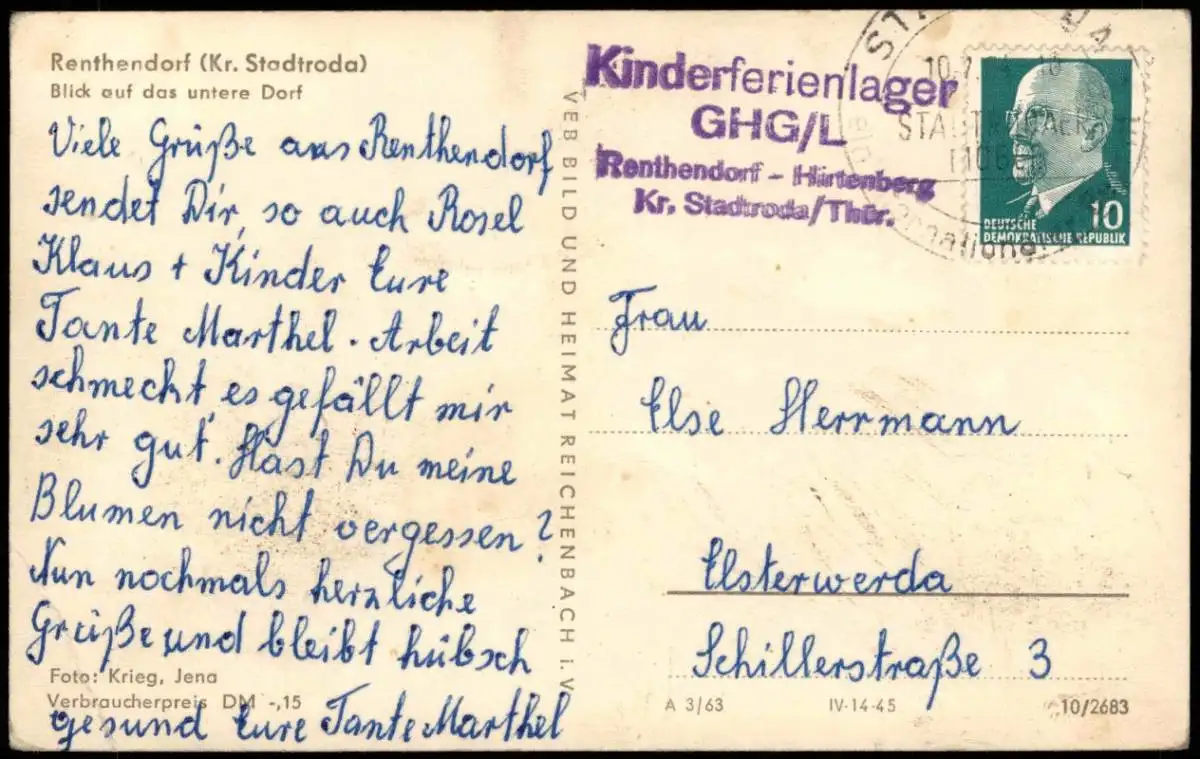 Renthendorf (Kr. Stadtroda)
Blick auf das untere Dorf
Viele Grüße aus Renthendorf
sendet Dir, so auch Rosel
Klaus + Kinder Eure
Tante Marthel. Arbeit
schmeckt, es gefällt mir
sehr gut. Hast Du meine
Blumen nicht vergessen?
Nun nochmals herzliche
Grüße und bleibt hübsch
gesund Eure Tante Marthel
Foto: Krieg, Jena
Verbraucherpreis DM -,15
VEB BILD UND HEIMAT REICHENBACH i. V.
Kinderferienlager
GHG/L
Renthendorf - Hirtenberg
Kr. Stadtroda/Thür.
10
DEUTSCHE
DEMOKRATISCHE REPUBLIK
Frau
Else Herrmann
Elsterwerda
Schillerstraße 3
A 3/63
IV-14-45
10/2683